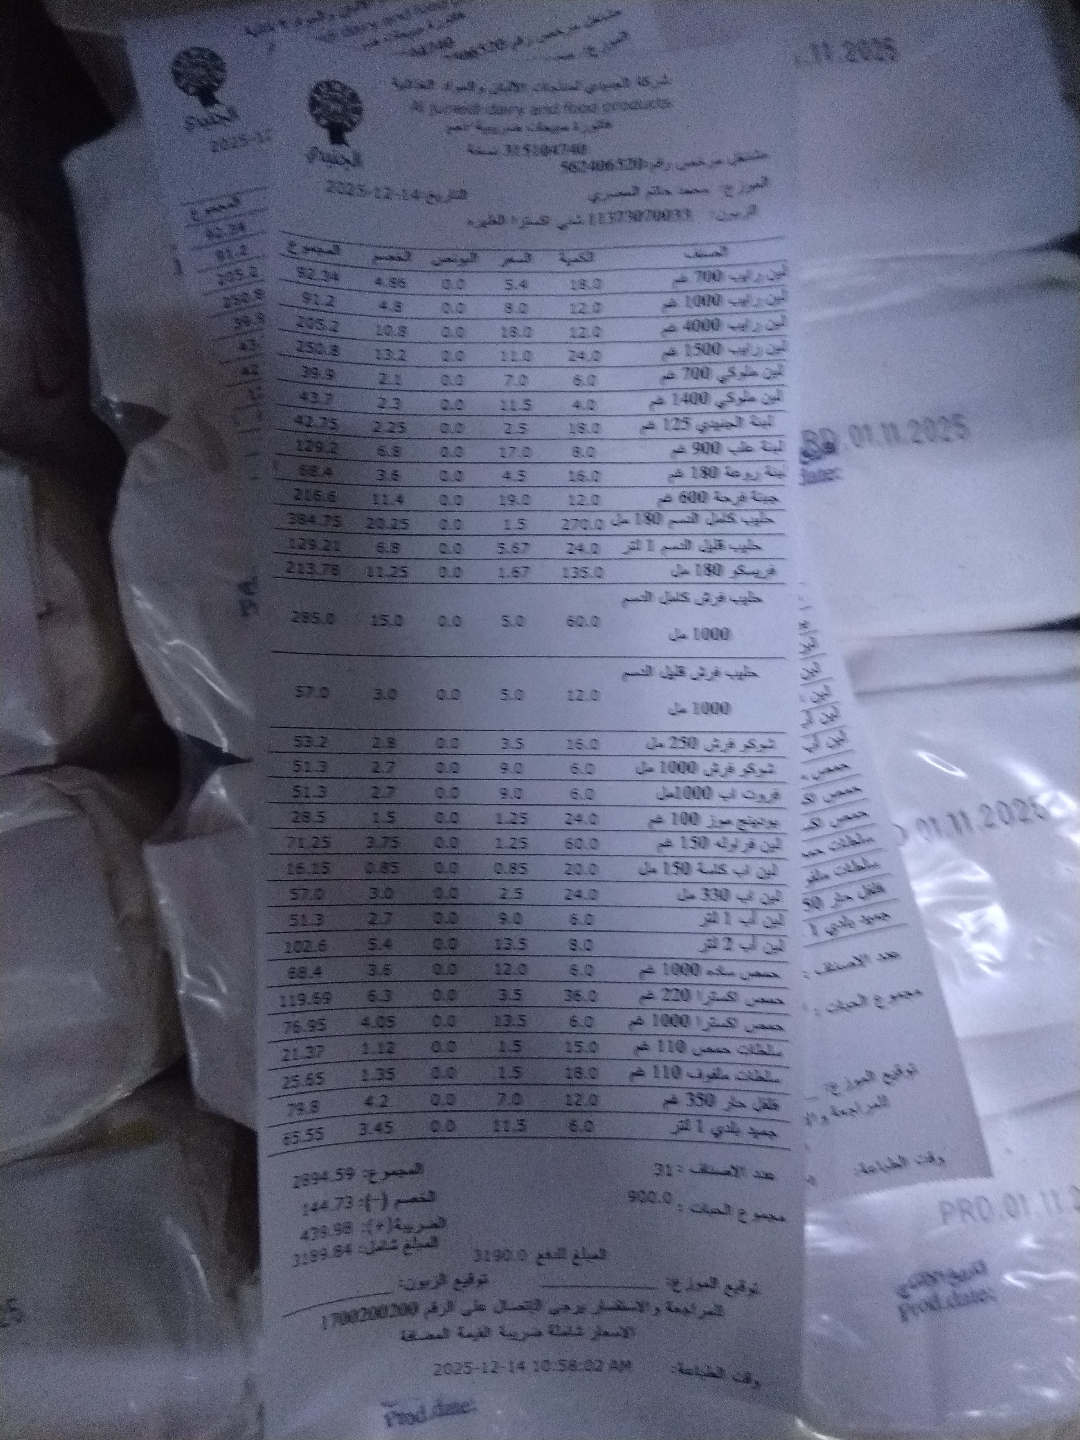 شركة الجنيدي لمنتجات الألبان والمواد الغذائية
Al Juneidi dairy and food products
فاتورة مبيعات ضريبية
315104740 نسخة
مشتغل مرخص رقم:562406520
الجنيدي
التاريخ:2025-12-14
الموزع: محمد حاتم المصري
الزبون: 11373070033
الصنف الكمية السعر البونص الخصم المجموع
لبن رايب 700 غم 18.0 5.4 0.0 4.86 92.34
لبن رايب 1000 غم 12.0 8.0 0.0 4.8 91.2
لبن رايب 4000 غم 12.0 18.0 0.0 10.8 205.2
لبن رايب 1500 غم 24.0 11.0 0.0 13.2 250.8
لبن ملوكي 700 غم 6.0 7.0 0.0 2.1 39.9
لبن ملوكي 1400 غم 4.0 11.5 0.0 2.3 43.7
لبنة الجنيدي 125 غم 18.0 2.5 0.0 2.25 42.75
لبنة علب 900 غم 8.0 17.0 0.0 6.8 129.2
لبنة روعة 180 غم 16.0 4.5 0.0 3.6 68.4
جبنة فرحة 600 غم 12.0 19.0 0.0 11.4 216.6
حليب كامل الدسم 180 مل 270.0 1.5 0.0 20.25 384.75
حليب قليل الدسم 1 لتر 24.0 5.67 0.0 6.8 129.21
فريسكو 180 مل 135.0 1.67 0.0 11.25 213.78
حليب فرش كامل الدسم
1000 مل 60.0 5.0 0.0 15.0 285.0
حليب فرش قليل الدسم
1000 مل 12.0 5.0 0.0 3.0 57.0
شوكو فرش 250 مل 16.0 3.5 0.0 2.8 53.2
شوكو فرش 1000 مل 6.0 9.0 0.0 2.7 51.3
فروت اب 1000مل 6.0 9.0 0.0 2.7 51.3
بودينج موز 100 غم 24.0 1.25 0.0 1.5 28.5
لبن فراوله 150 غم 60.0 1.25 0.0 3.75 71.25
لبن اب كاسة 150 مل 20.0 0.85 0.0 0.85 16.15
لبن اب 330 مل 24.0 2.5 0.0 3.0 57.0
لبن أب 1 لتر 6.0 9.0 0.0 2.7 51.3
لبن أب 2 لتر 8.0 13.5 0.0 5.4 102.6
حمص ساده 1000 غم 6.0 12.0 0.0 3.6 68.4
حمص اكسترا 220 غم 36.0 3.5 0.0 6.3 119.69
حمص اكسترا 1000 غم 6.0 13.5 0.0 4.05 76.95
سلطات حمص 110 غم 15.0 1.5 0.0 1.12 21.37
سلطات ملفوف 110 غم 18.0 1.5 0.0 1.35 25.65
فلفل حار 350 غم 12.0 7.0 0.0 4.2 79.8
جميد بلدي 1 لتر 6.0 11.5 0.0 3.45 65.55
عدد الاصناف : 31 المجموع: 2894.59
مجموع الحبات : 900.0 الخصم (-): 144.73
الضريبة(+): 439.98
المبلغ شامل: 3189.84
المبلغ للدفع 3190.0
توقيع الموزع: توقيع الزبون:
للمراجعة والاستفسار يرجى الإتصال على الرقم 1700200200
الاسعار شاملة ضريبة القيمة المضافة
وقت الطباعة: 2025-12-14 10:58:02 AM
Prod.date:
.11.2025
RD.01.11.2025
01.11.2025
PRD.01.11.2
تاريخ الانتاج
Prod.date: